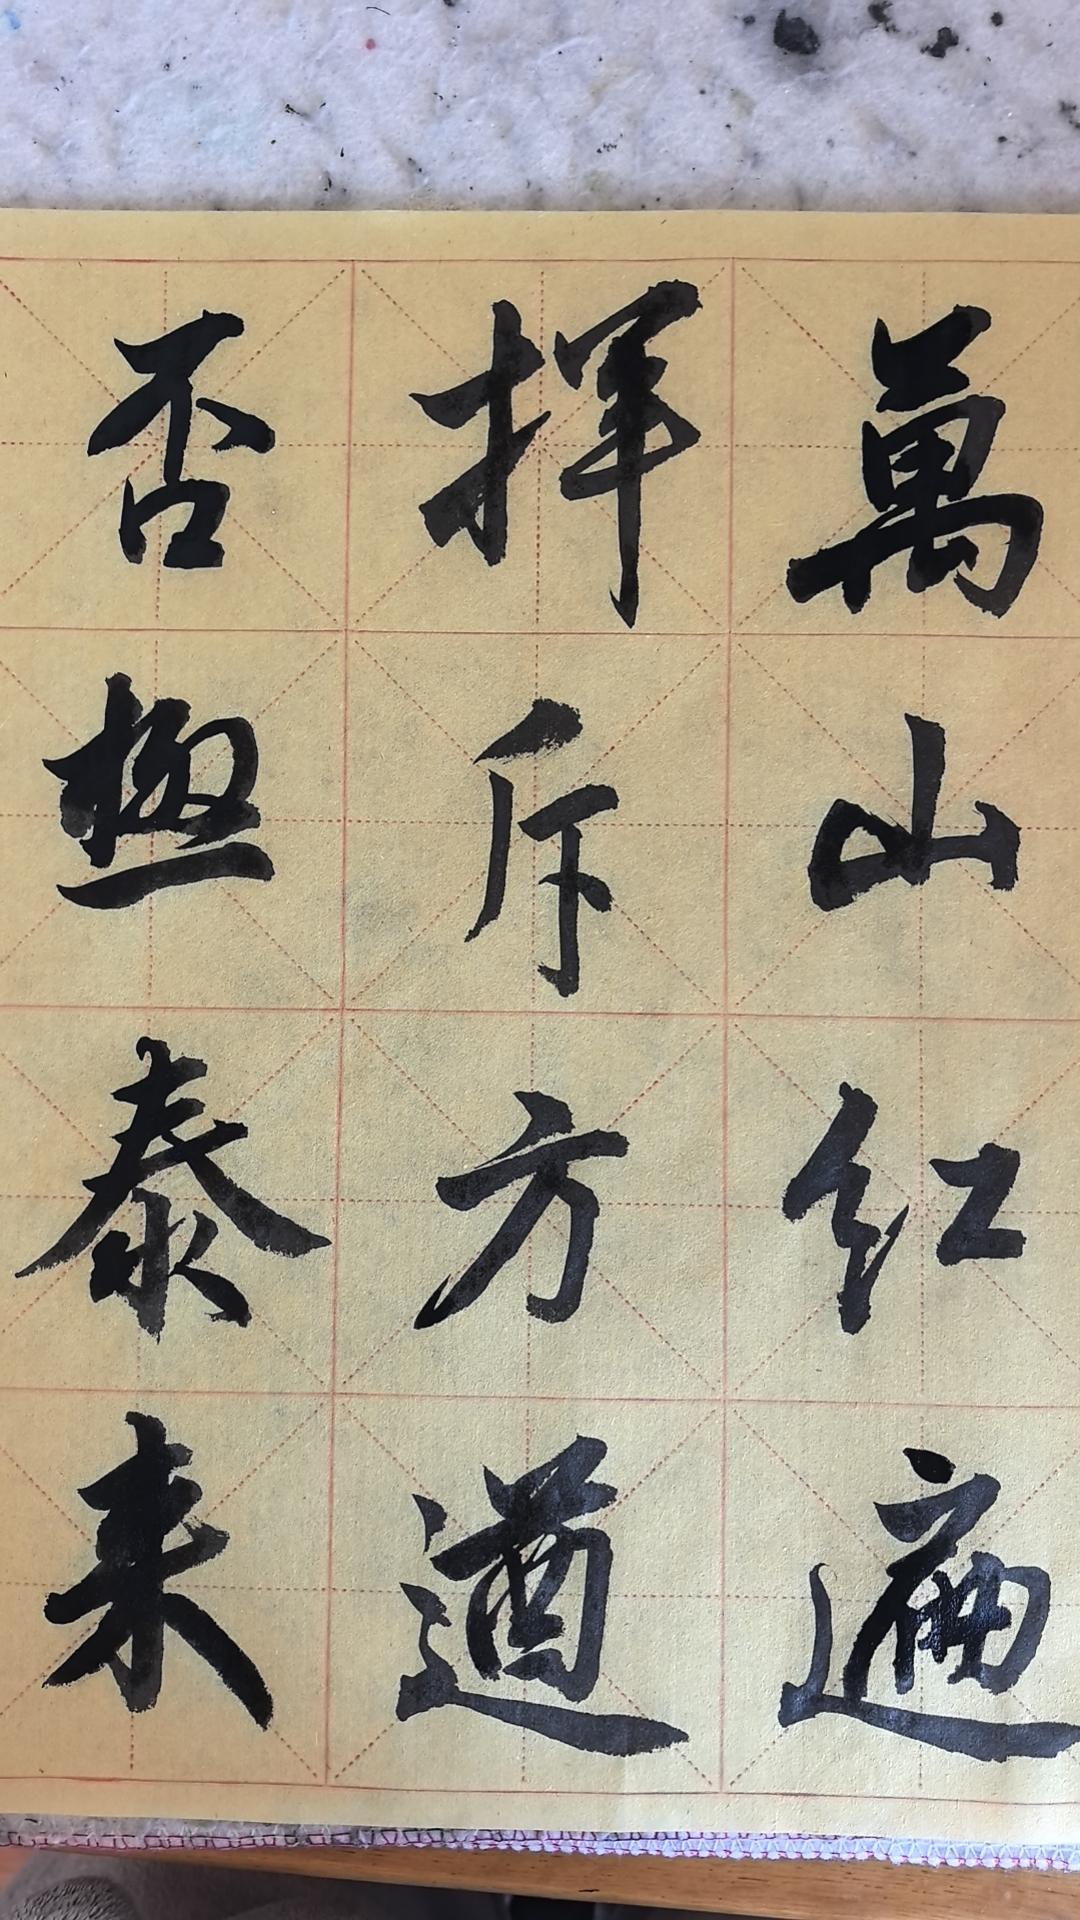 萬山红遍
揮斥方遒
否極泰来